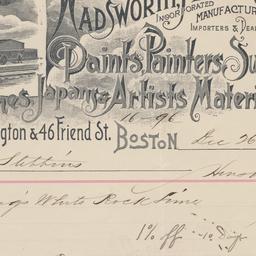 WADSWORTH,
INCORPORATED
MANUFACTUR
IMPORTERS & DEA
Paints, Painters, Su
nes, Japans & Artists Materi
gton & 46 Friend St. BOSTON
16-96
Dec 26
Stebbins
White Rock Lime
1% off 10 Days